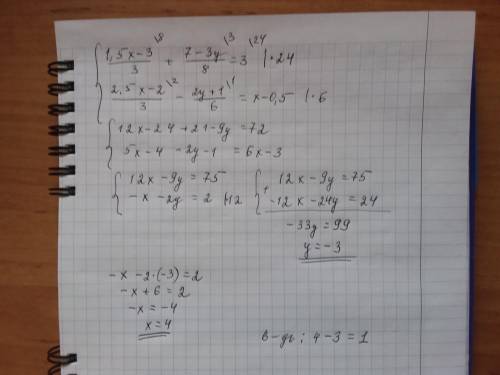 { (1,5x-3)/3 \8 + (7-3y)/8 \3 = 3 \24 | · 24
(2,5x-2)/3 \2 - (2y+1)/6 \1 = x-0,5 | · 6
{ 12x-24+21-9y=72
5x-4 -2y-1 = 6x-3
{ 12x-9y=75 { 12x-9y=75
-x -2y=2 |·12 + -12x-24y=24
-33y=99
y=-3
-x-2·(-3)=2
-x+6=2
-x=-4
x=4
в-дь: 4-3=1